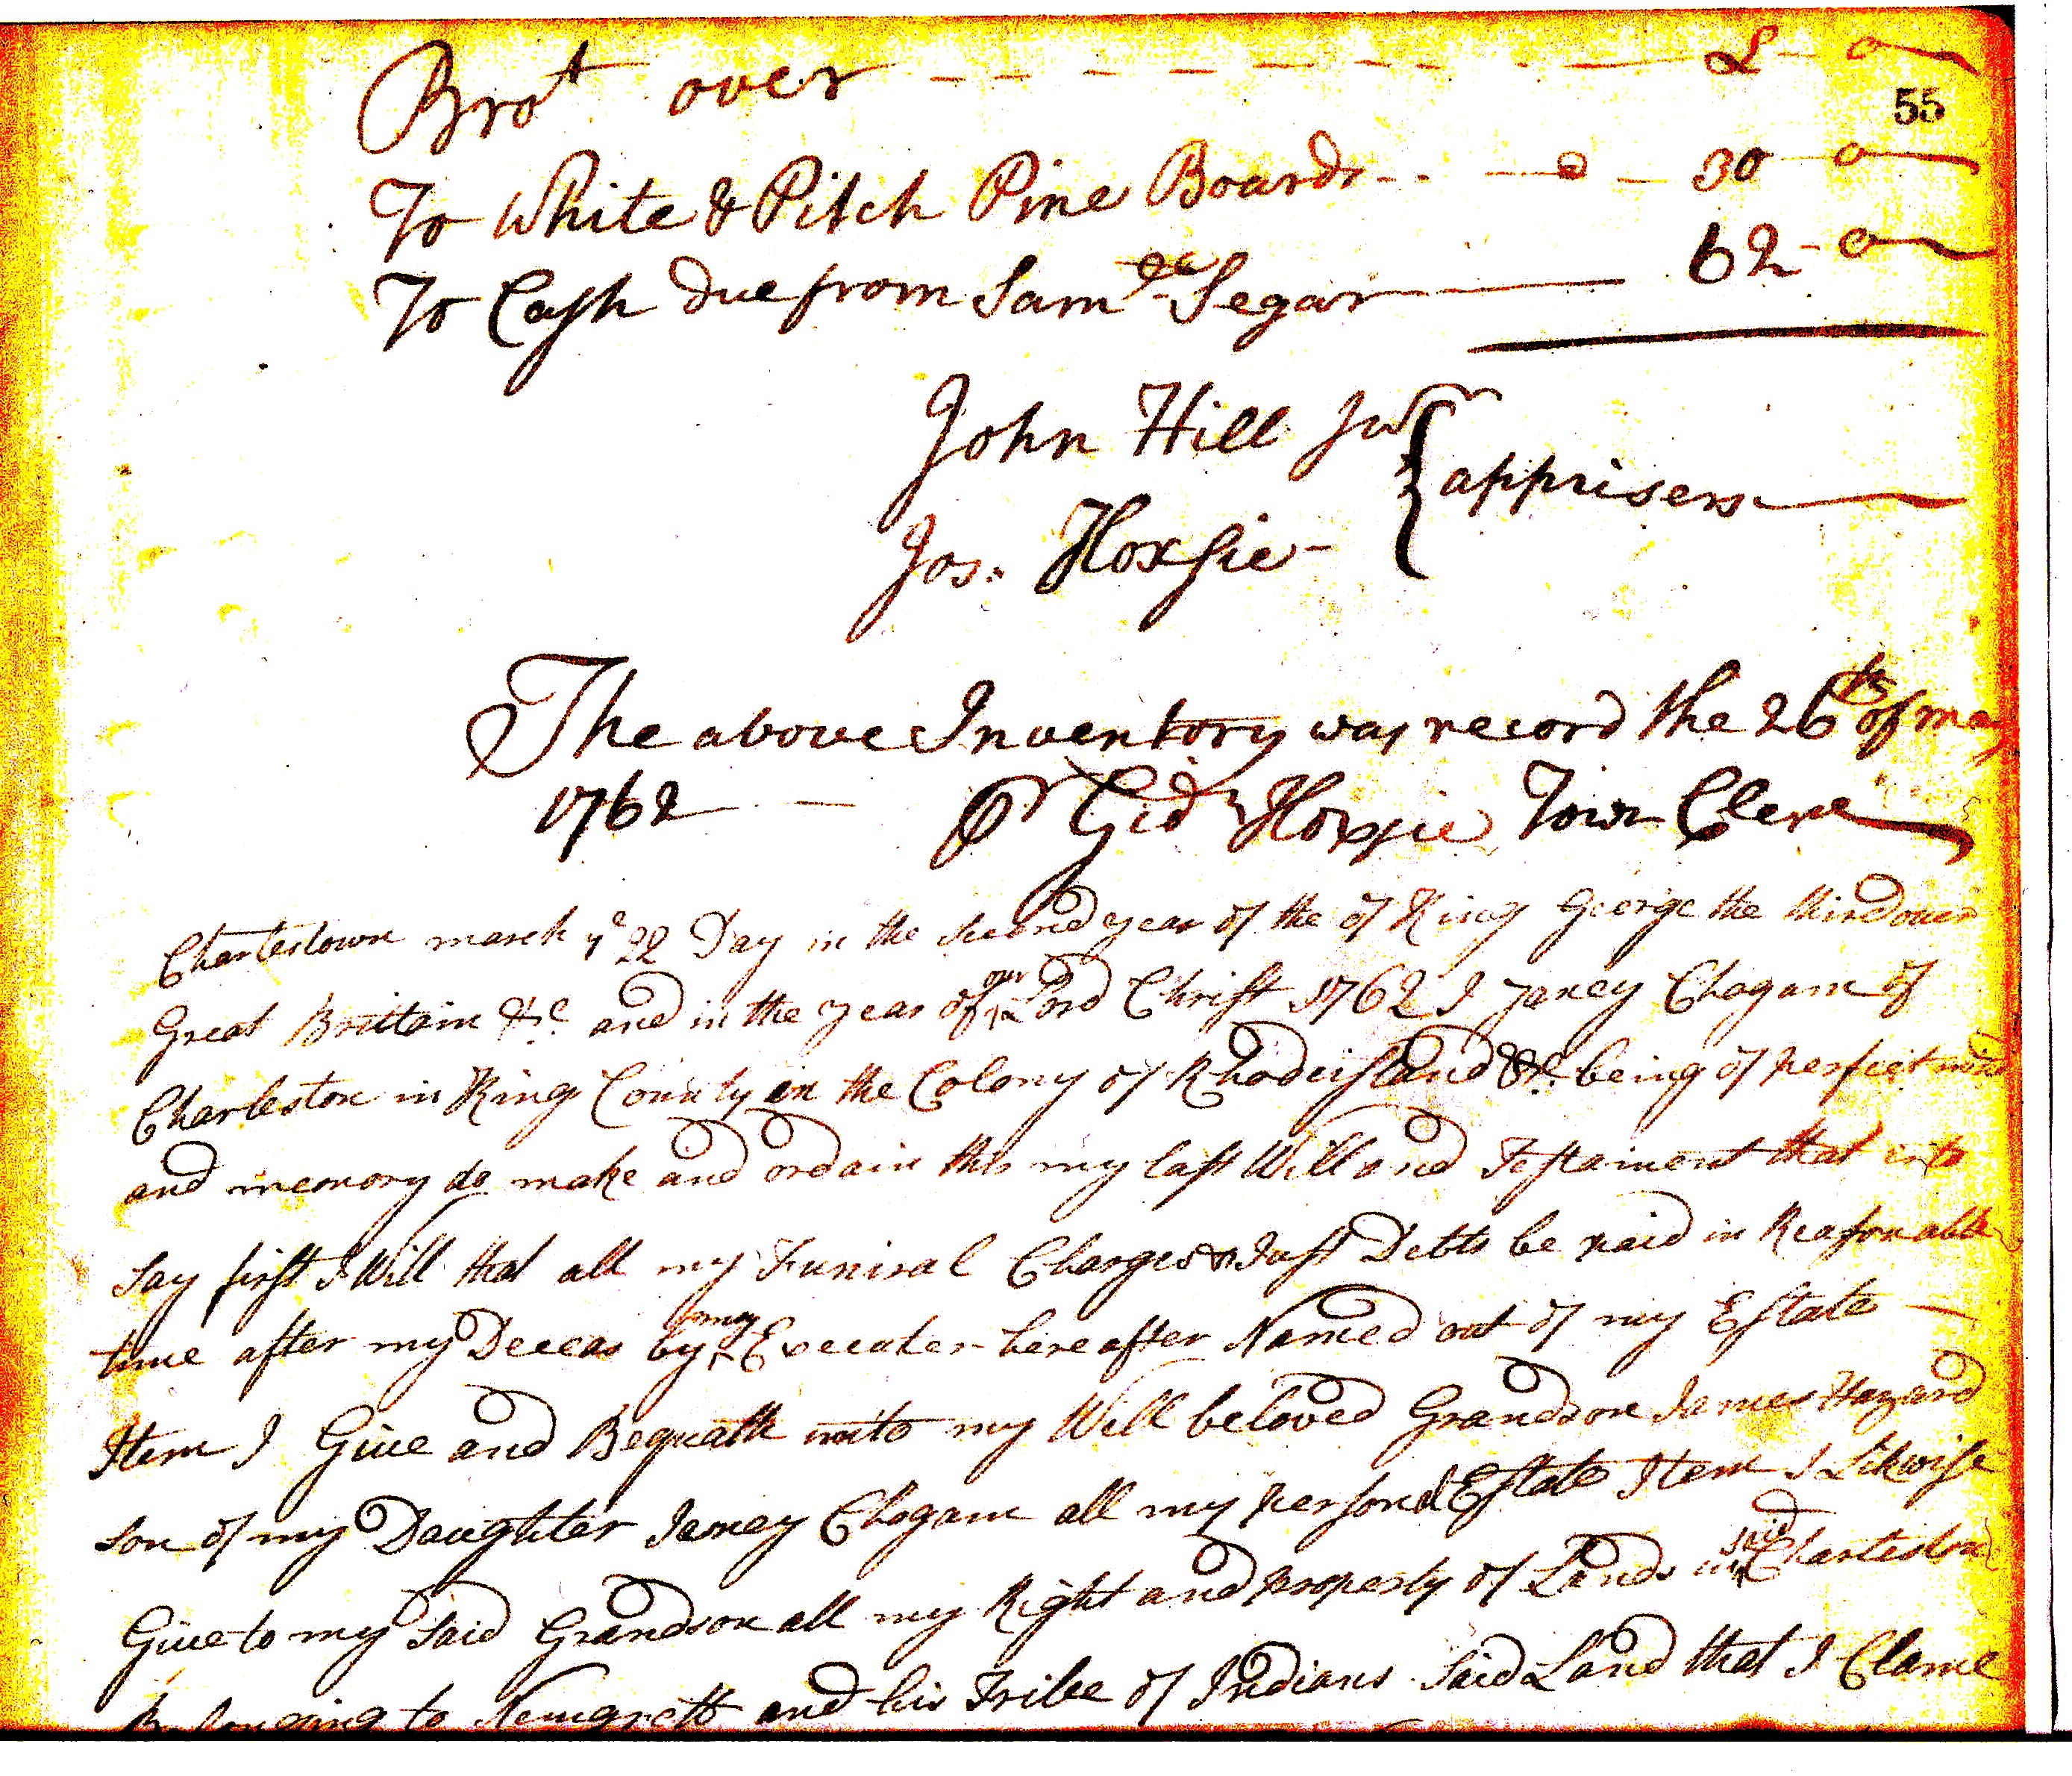 Brot over - - - - - - - £ - 0
55
To White & Pitch Pine Boards - - - 0 - 30 - 0
To Cash due from Saml Segar - 62 - 0
John Hill Jur
apprisers
Jos. Hoxsie
The above Inventory was record the 26th of may
1762 - Pr Gidn Hoxsie Town Clerk
Charlestown march ye 22 Day in the Second year of the of King George the third over
Great Brittain &c. and in the year of our Lord Christ 1762 I Janey Chagam of
Charleston in King County in the Colony of Rhodeisland &c. being of perfect mind
and memory do make and ordain this my last Will and Testament that is to
Say first I Will that all my Funiral Charges & Just Debts be paid in Reasonable
time after my Deceas by my Executer hereafter Named out of my Estate
Item I Give and Bequath unto my Well beloved Grandson James Hazard
Son of my Daughter Janey Chagam all my personal Estate Item I Likwise
Give to my Said Grandson all my Right and property of Lands in said Charleston
Belonging to Nemgrett and his Tribe of Indians Said Land that I Clame